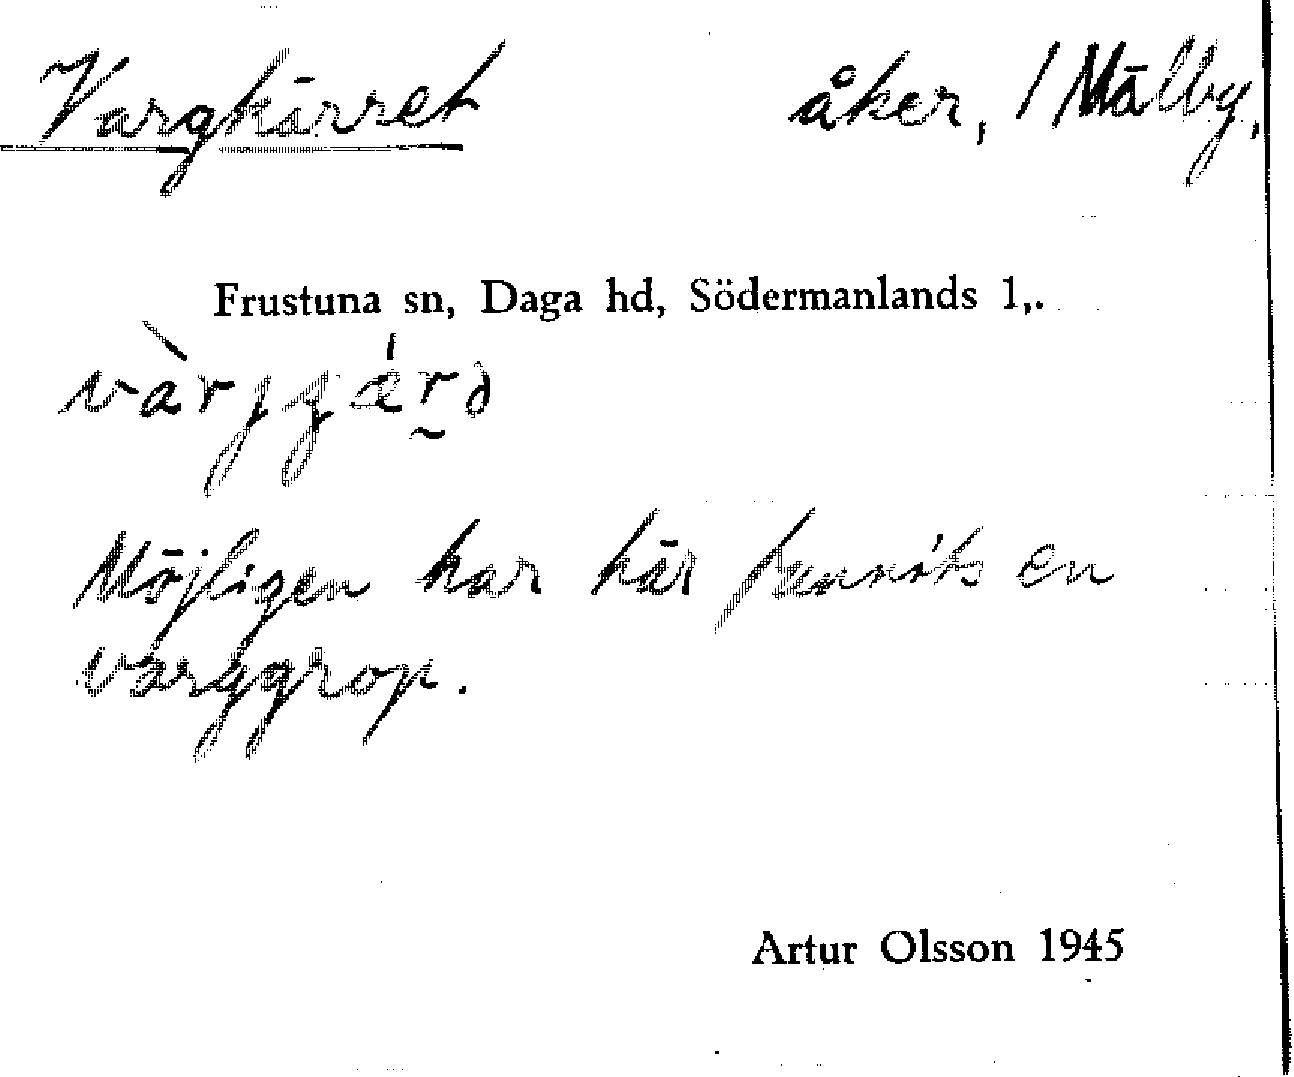 Vargkärret åker, / Mälby,
Frustuna sn, Daga hd, Södermanlands l,.
vàrjgǽrd
Möjligen har här funnits en
varggrop.
Artur Olsson 1945